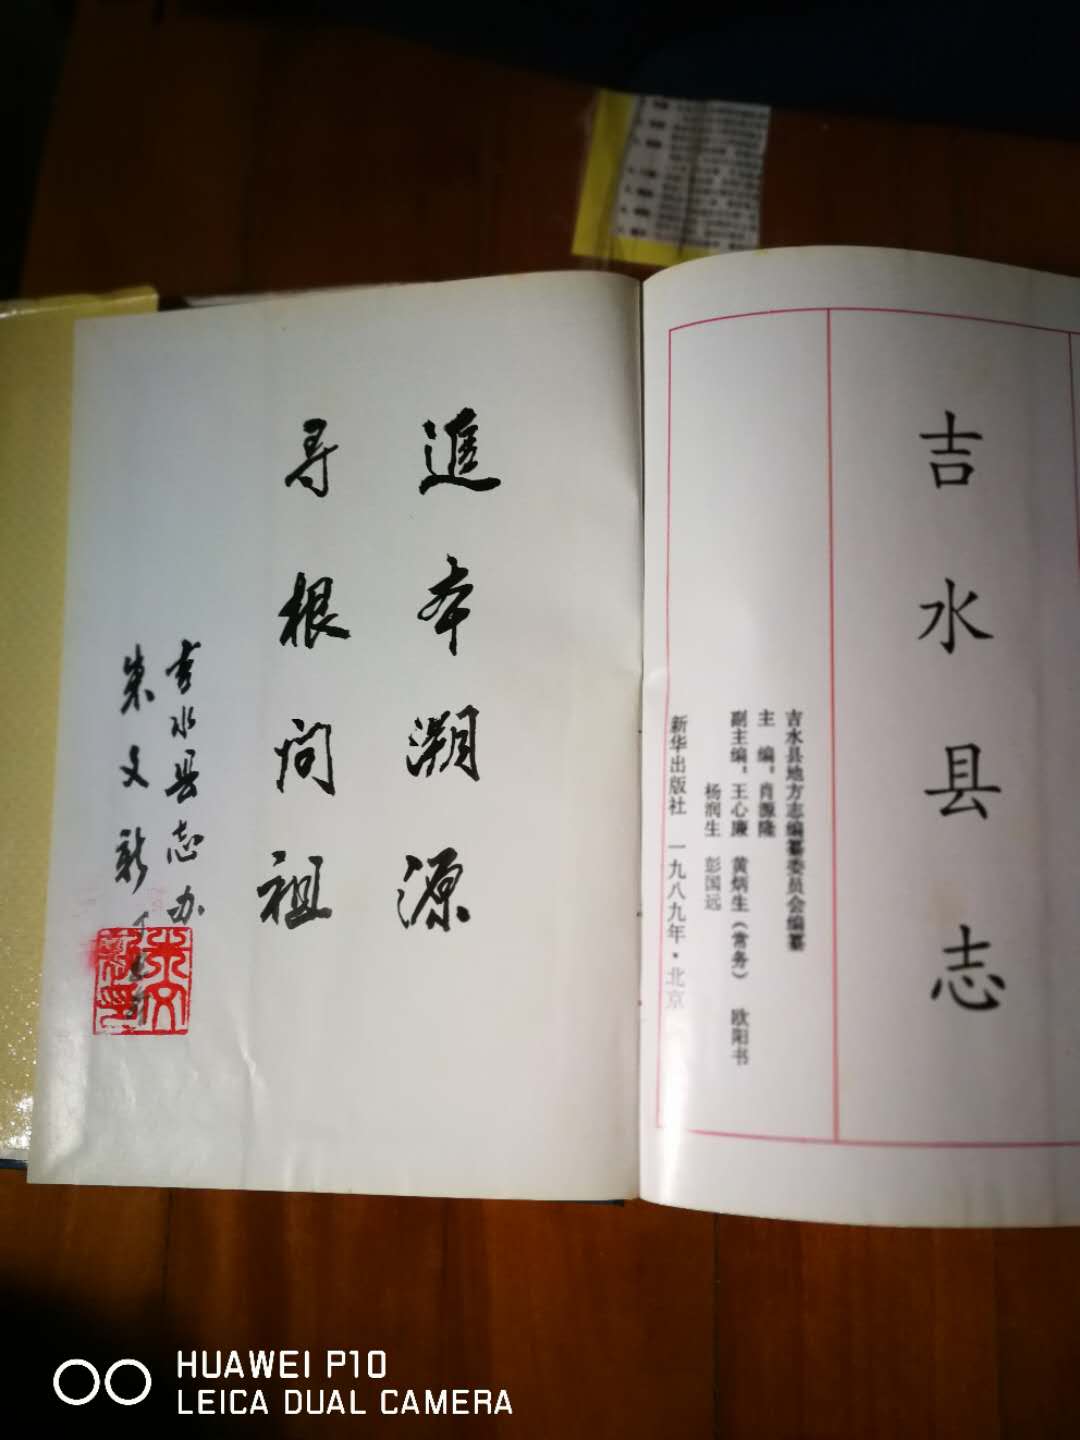 進本溯源
寻根问祖
吉水县志办
朱文新
朱文新印
吉水县志
吉水县地方志编纂委员会编纂
主 编：肖源隆
副主编：王心廉 黄炳生（常务） 欧阳书
杨润生 彭国远
新华出版社 一九八九年·北京
HUAWEI P10
LEICA DUAL CAMERA